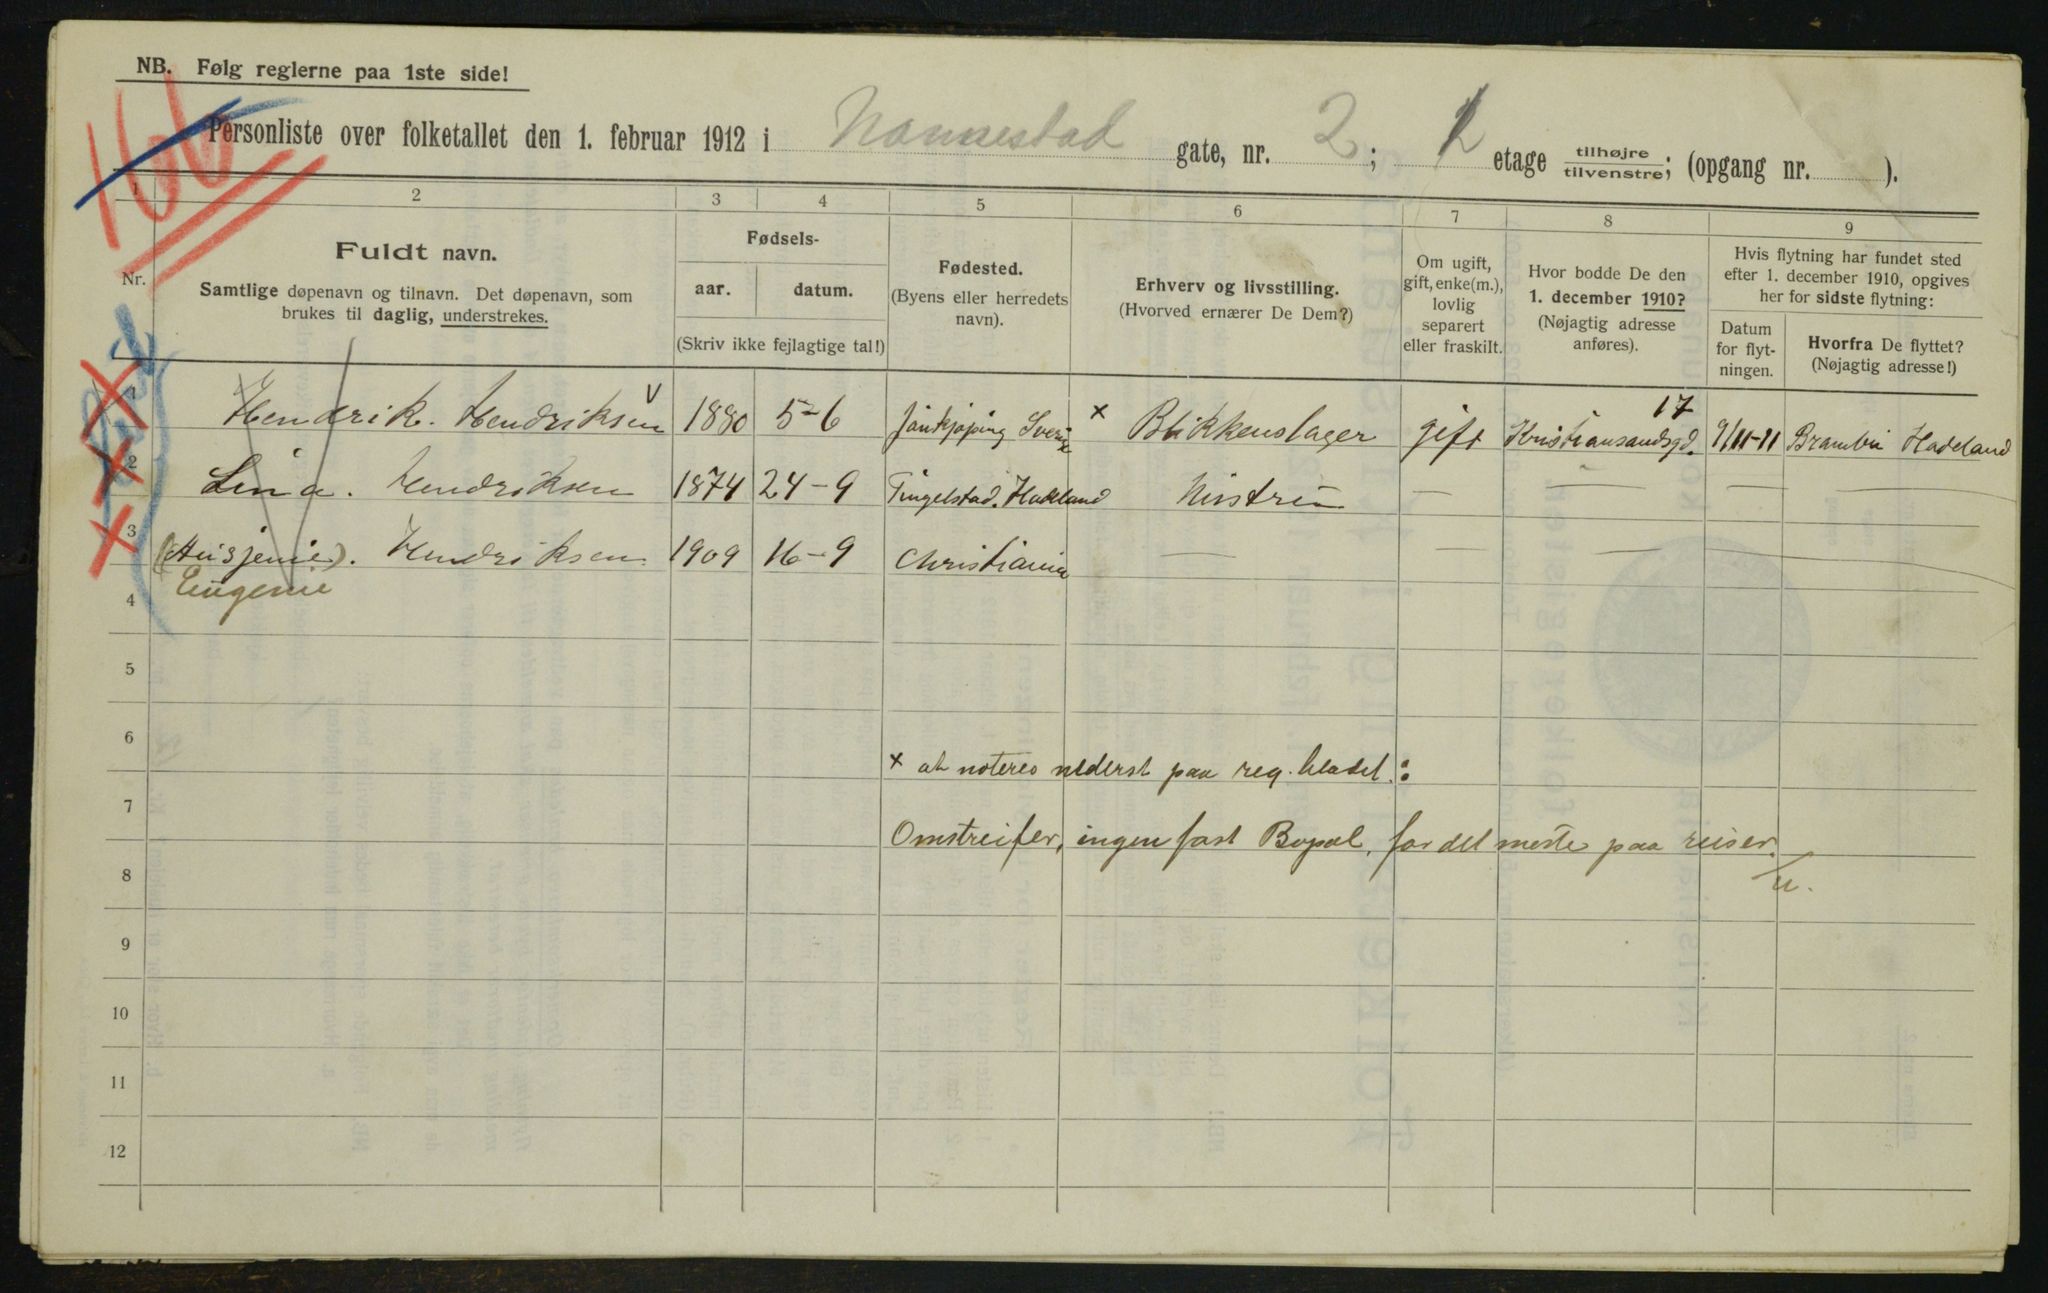 NB. Følg reglerne paa 1ste side!
166
Personliste over folketallet den 1. februar 1912 i Nannestad gate, nr. 2; 2 etage tilhøjre tilvenstre; (opgang nr. ).
1 2 3 4 5 6 7 8 9
Nr.
Fuldt navn.
Samtlige døpenavn og tilnavn. Det døpenavn, som
brukes til daglig, understrekes.
Fødsels-
aar. datum.
(Skriv ikke fejlagtige tal!)
Fødested.
(Byens eller herredets
navn).
Erhverv og livsstilling.
(Hvorved ernærer De Dem?)
Om ugift,
gift, enke(m.),
lovlig
separert
eller fraskilt.
Hvor bodde De den
1. december 1910?
(Nøjagtig adresse
anføres).
Hvis flytning har fundet sted
efter 1. december 1910, opgives
her for sidste flytning:
Datum
for flyt-
ningen.
Hvorfra De flyttet?
(Nøjagtig adresse!)
1 Hendrik. Hendriksen 1880 5-6 Jönkjøping Sverie × Blikkenslager gift Kristiansandsgd. 17 9/11-11 Brandbu Hadeland
2 Lina. Hendriksen 1874 24-9 Tingelstad. Hadeland Hustru — — — —
3 (Heisjenie). Hendriksen 1909 16-9 Christiania — — — — —
Eugenie
4
5
6
× at noteres nederst paa reg. bladet:
7
Omstreifer, ingen fast Bopæl, for det meste paa reiser.
8
9
10
11
12